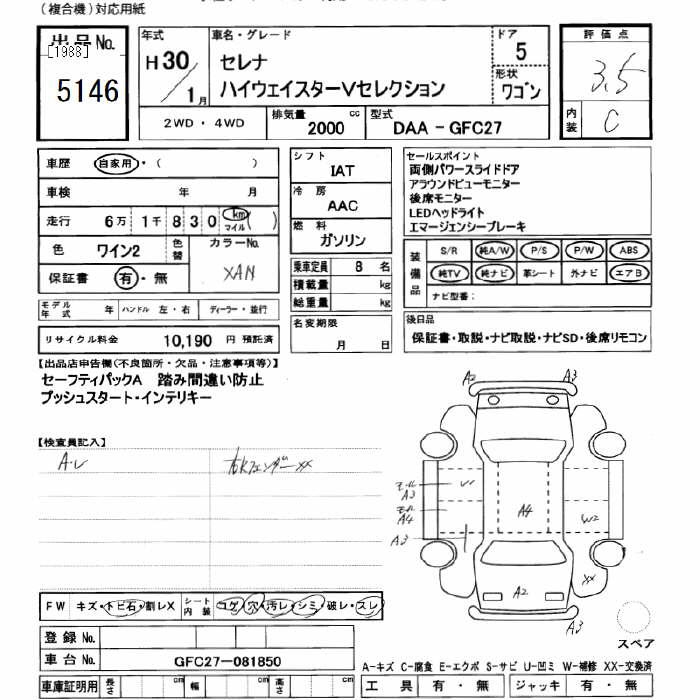 (複合機)対応用紙
出品No.
[1988]
5146
年式
H30/1月
車名・グレード
セレナ
ハイウェイスターVセレクション
ドア
5
形状
ワゴン
評価点
3.5
内装
C
2WD・4WD
排気量 cc
2000
型式
DAA-GFC27
車歴 自家用・( )
車検 年 月
走行 6万1千830 km マイル ( )
色 ワイン2 色替
カラーNo.
XAN
保証書 有・無
モデル年式 年 ハンドル 左・右 ディーラー・並行
リサイクル料金 10,190 円 預託済
シフト
IAT
冷房
AAC
燃料
ガソリン
乗車定員 8 名
積載量 kg
総重量 kg
名変期限
月 日
セールスポイント
両側パワースライドドア
アラウンドビューモニター
後席モニター
LEDヘッドライト
エマージェンシーブレーキ
装備品
S/R 純A/W P/S P/W ABS
純TV 純ナビ 革シート 外ナビ エアB
ナビ型番:
後日品
保証書・取説・ナビ取説・ナビSD・後席リモコン
【出品店申告欄(不良箇所・欠品・注意事項等)】
セーフティパックA 踏み間違い防止
プッシュスタート・インテリキー
【検査員記入】
A・U
右Rフェンダー XX
A2 A3
モール A3
モール A4
A3
W1
A4
W2
XX
A2
A3
スペア
FW キズ・トビ石・割レX
シート内装 コゲ・穴・汚レ・シミ・破レ・スレ
登録No.
車台No. GFC27-081850
車庫証明用 長さ cm 幅 cm 高さ cm
A-キズ C-腐食 E-エクボ S-サビ U-凹ミ W-補修 XX-交換済
工具 有・無 ジャッキ 有・無